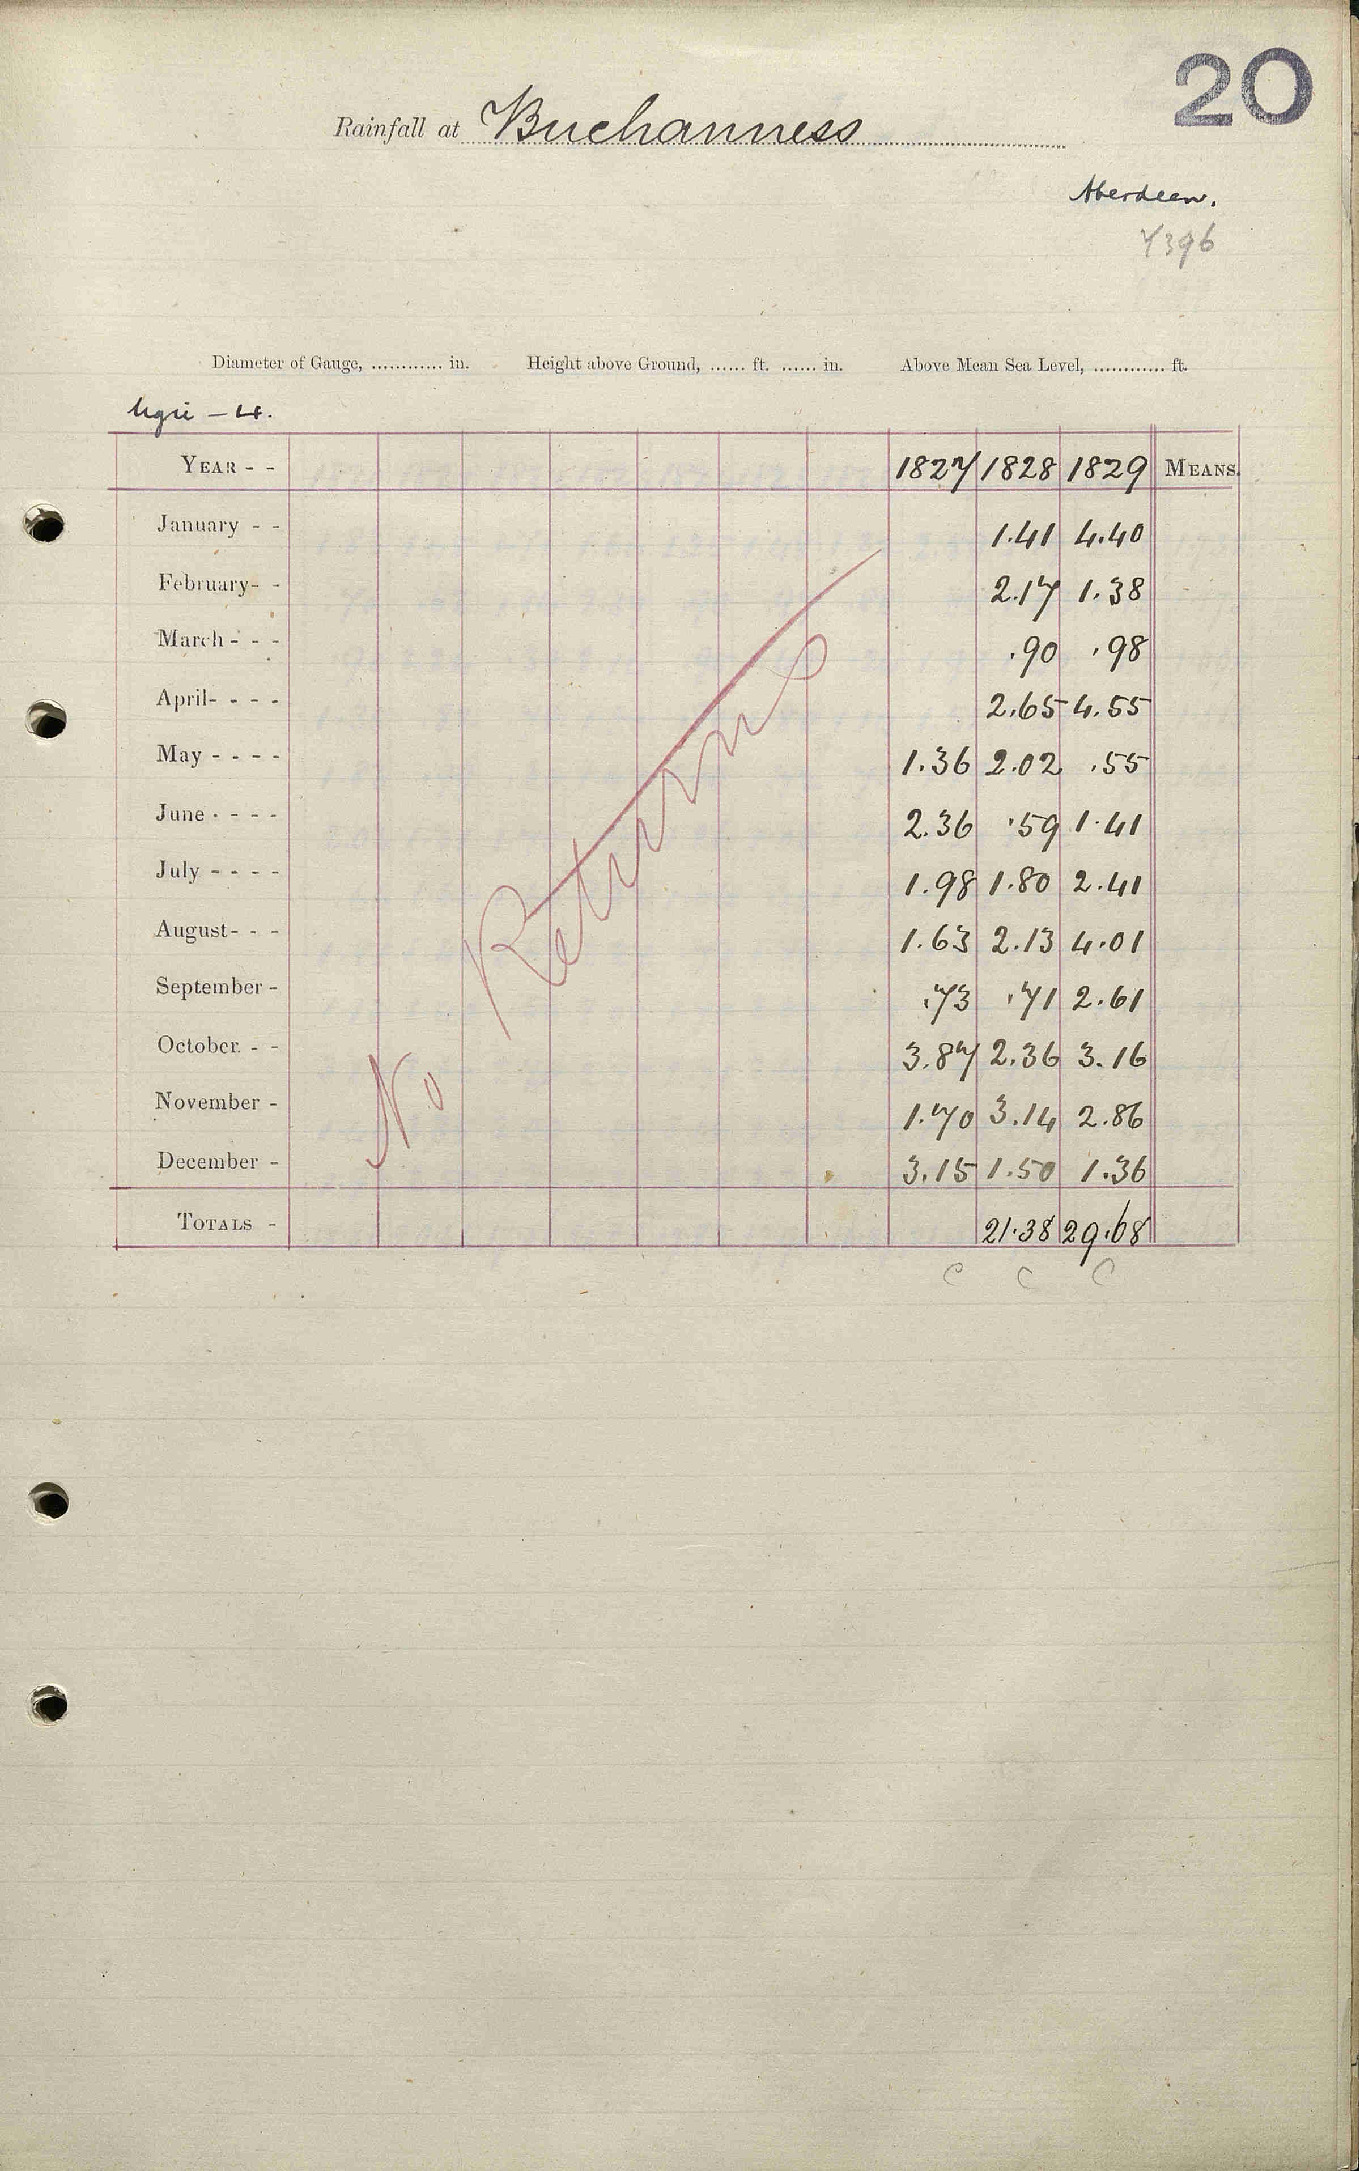 20
Rainfall at Buchanness
Aberdeen.
7396
Diameter of Gauge, ............ in. Height above Ground, ...... ft. ...... in. Above Mean Sea Level, ............ ft.
Ugie – 4.
YEAR - - 1827 1828 1829 MEANS.
January - - 1.41 4.40
February - - 2.17 1.38
March - - - .90 .98
April - - - - 2.65 4.55
May - - - - 1.36 2.02 .55
June - - - - 2.36 .59 1.41
July - - - - 1.98 1.80 2.41
August - - - 1.63 2.13 4.01
September - .73 .71 2.61
October - - 3.87 2.36 3.16
November - 1.70 3.14 2.86
December - 3.15 1.50 1.36
TOTALS - 21.38 29.68
C C C
No Returns